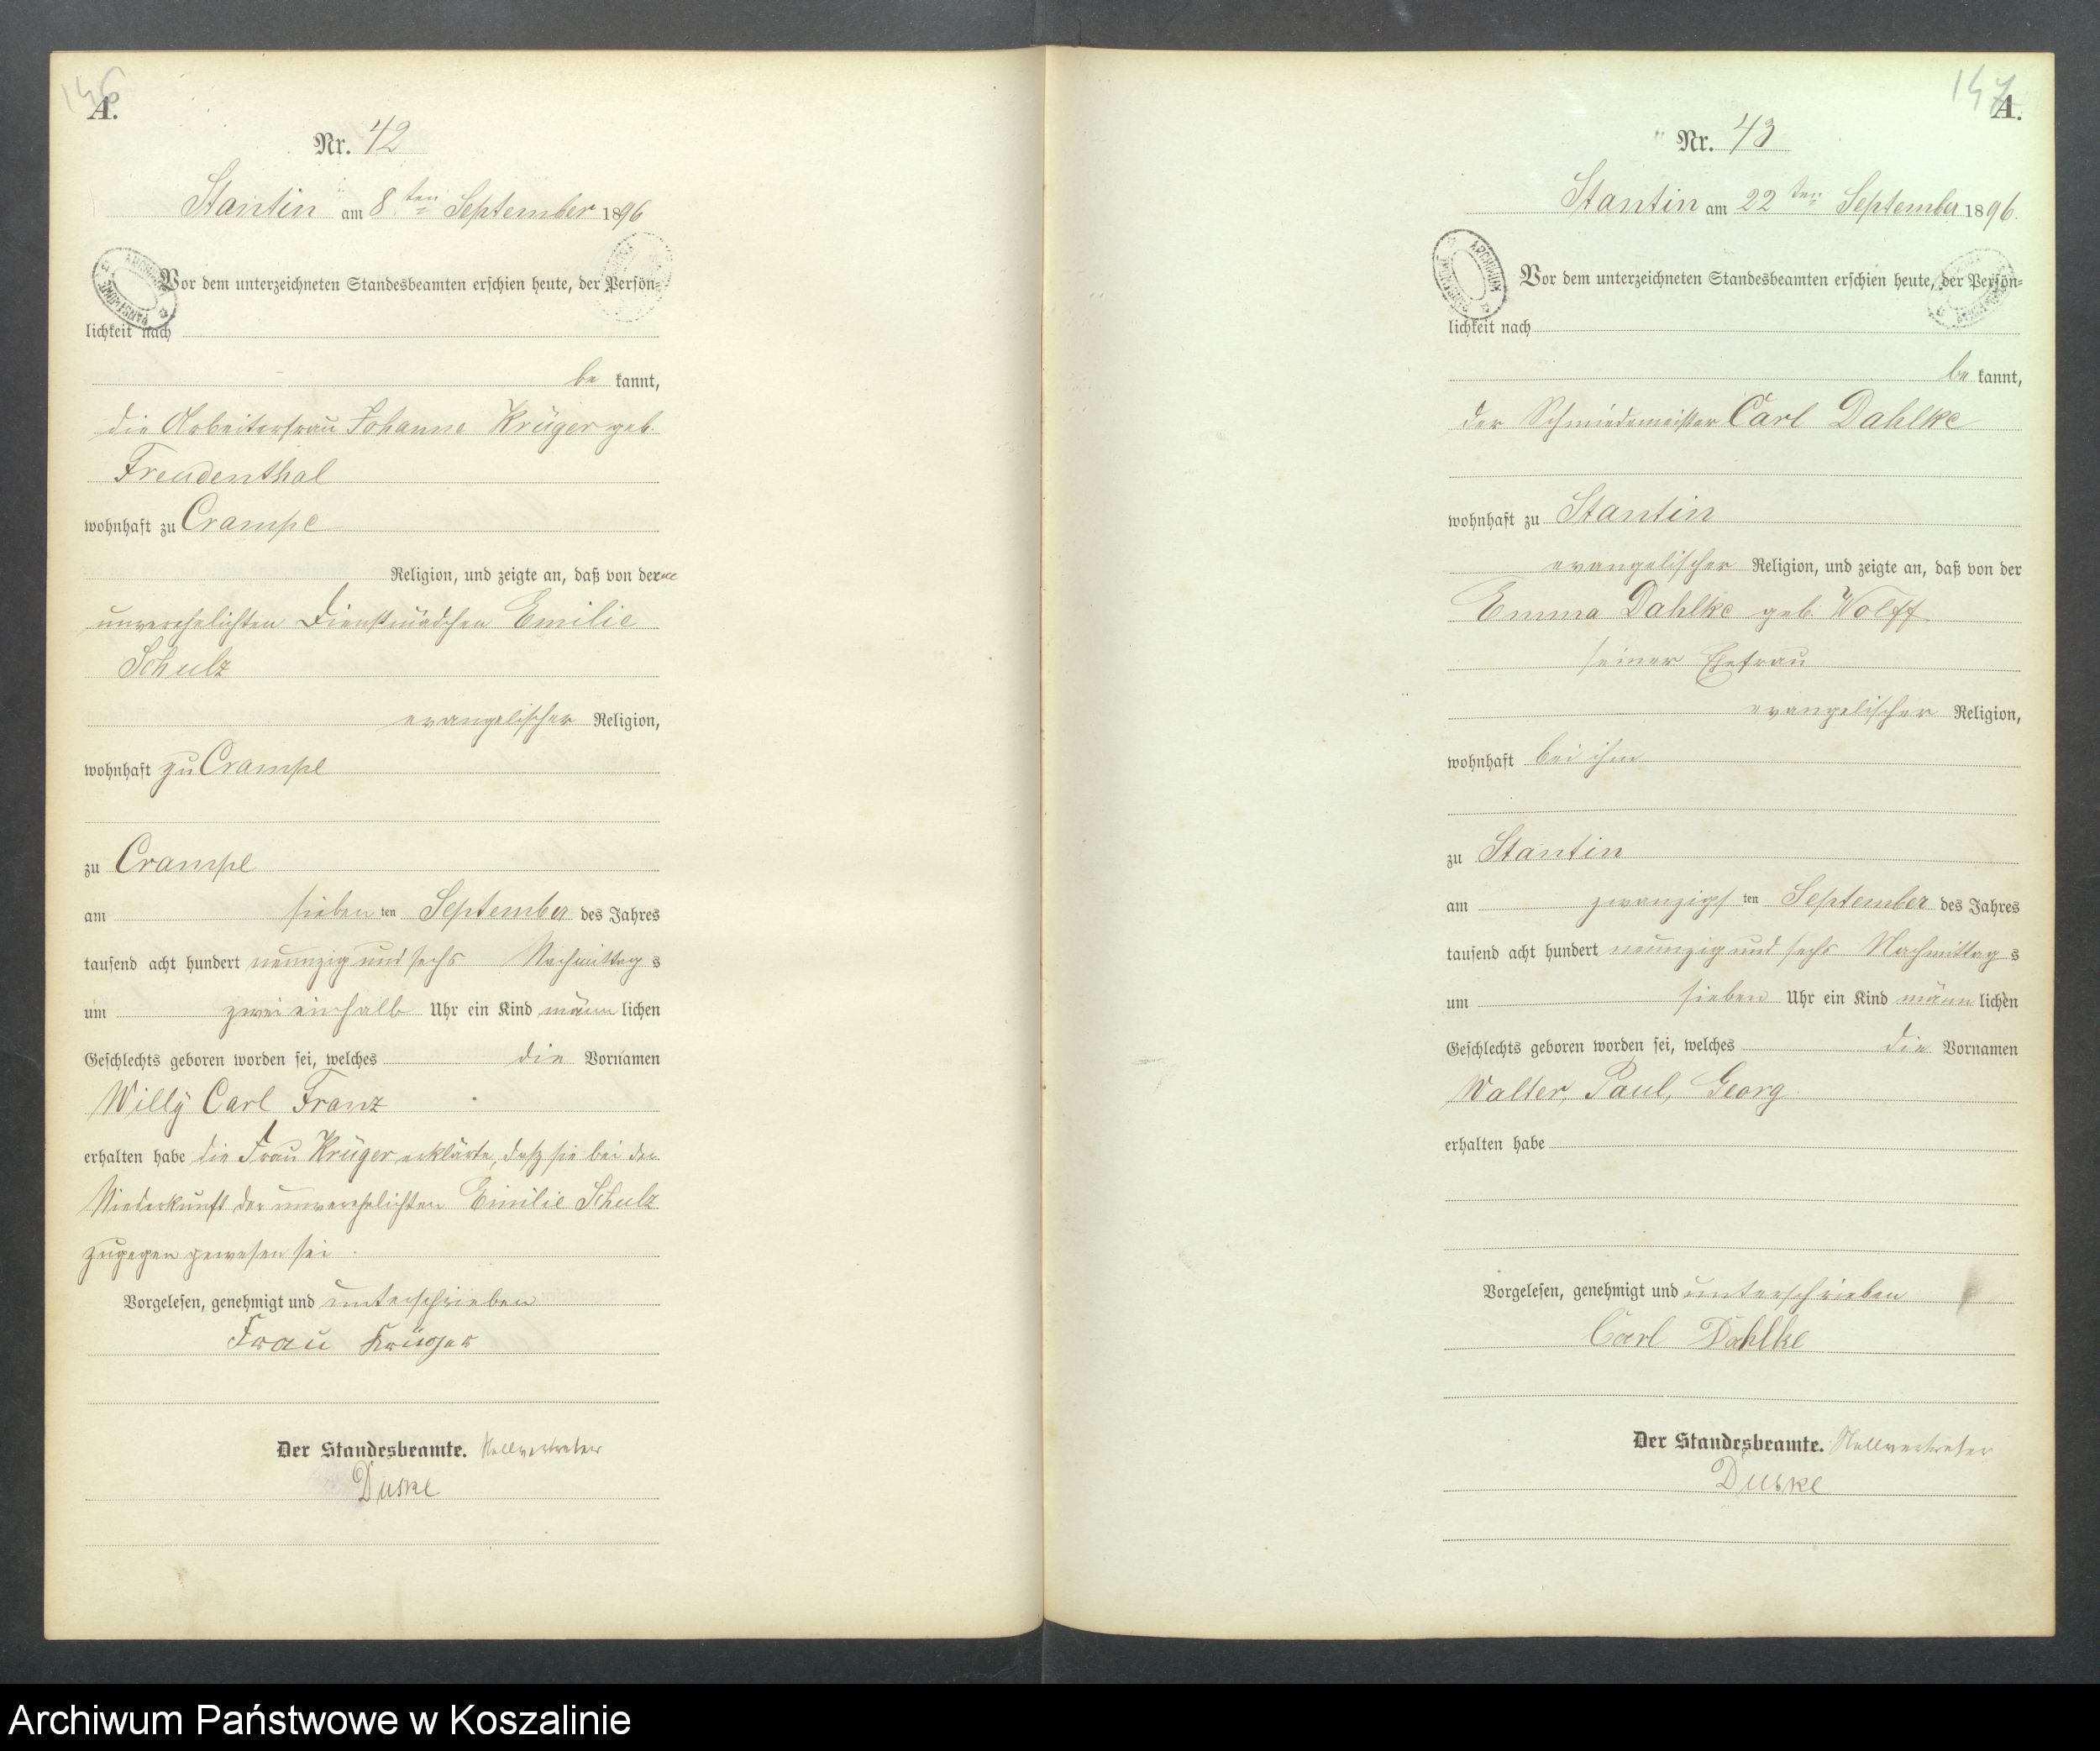 146
A.
Nr. 42
Stantin am 8 ten September 1896
Vor dem unterzeichneten Standesbeamten erschien heute, der Persön-
lichkeit nach
be kannt,
die Arbeiterfrau Johanna Krüger geb.
Freudenthal
wohnhaft zu Crampe
Religion, und zeigte an, daß von der
unverehelichten Dienstmädchen Emilie
Schulz
evangelischer Religion,
wohnhaft zu Crampe
zu Crampe
am sieben ten September des Jahres
tausend acht hundert neunzig und sechs Nachmittag s
um zwei einhalb Uhr ein Kind männ lichen
Geschlechts geboren worden sei, welches die Vornamen
Willy Carl Franz
erhalten habe die Frau Krüger erklärte, daß sie bei der
Niederkunft der unverehelichten Emilie Schulz
zugegen gewesen sei.
Vorgelesen, genehmigt und unterschrieben
Frau Krüger
Der Standesbeamte. Stellvertreter
Duske
147
A.
Nr. 43
Stantin am 22 ten September 1896.
ARCHIWUM
Vor dem unterzeichneten Standesbeamten erschien heute, der Persön-
lichkeit nach
be kannt,
der Schmiedemeister Carl Dahlke
wohnhaft zu Stantin
evangelischer Religion, und zeigte an, daß von der
Emma Dahlke geb. Wolff
seiner Ehefrau
evangelischer Religion,
wohnhaft bei ihm
zu Stantin
am zwanzigs ten September des Jahres
tausend acht hundert neunzig und sechs Nachmittag s
um sieben Uhr ein Kind männ lichen
Geschlechts geboren worden sei, welches die Vornamen
Walter, Paul, Georg
erhalten habe
Vorgelesen, genehmigt und unterschrieben
Carl Dahlke
Der Standesbeamte. Stellvertreter
Duske
Archiwum Państwowe w Koszalinie